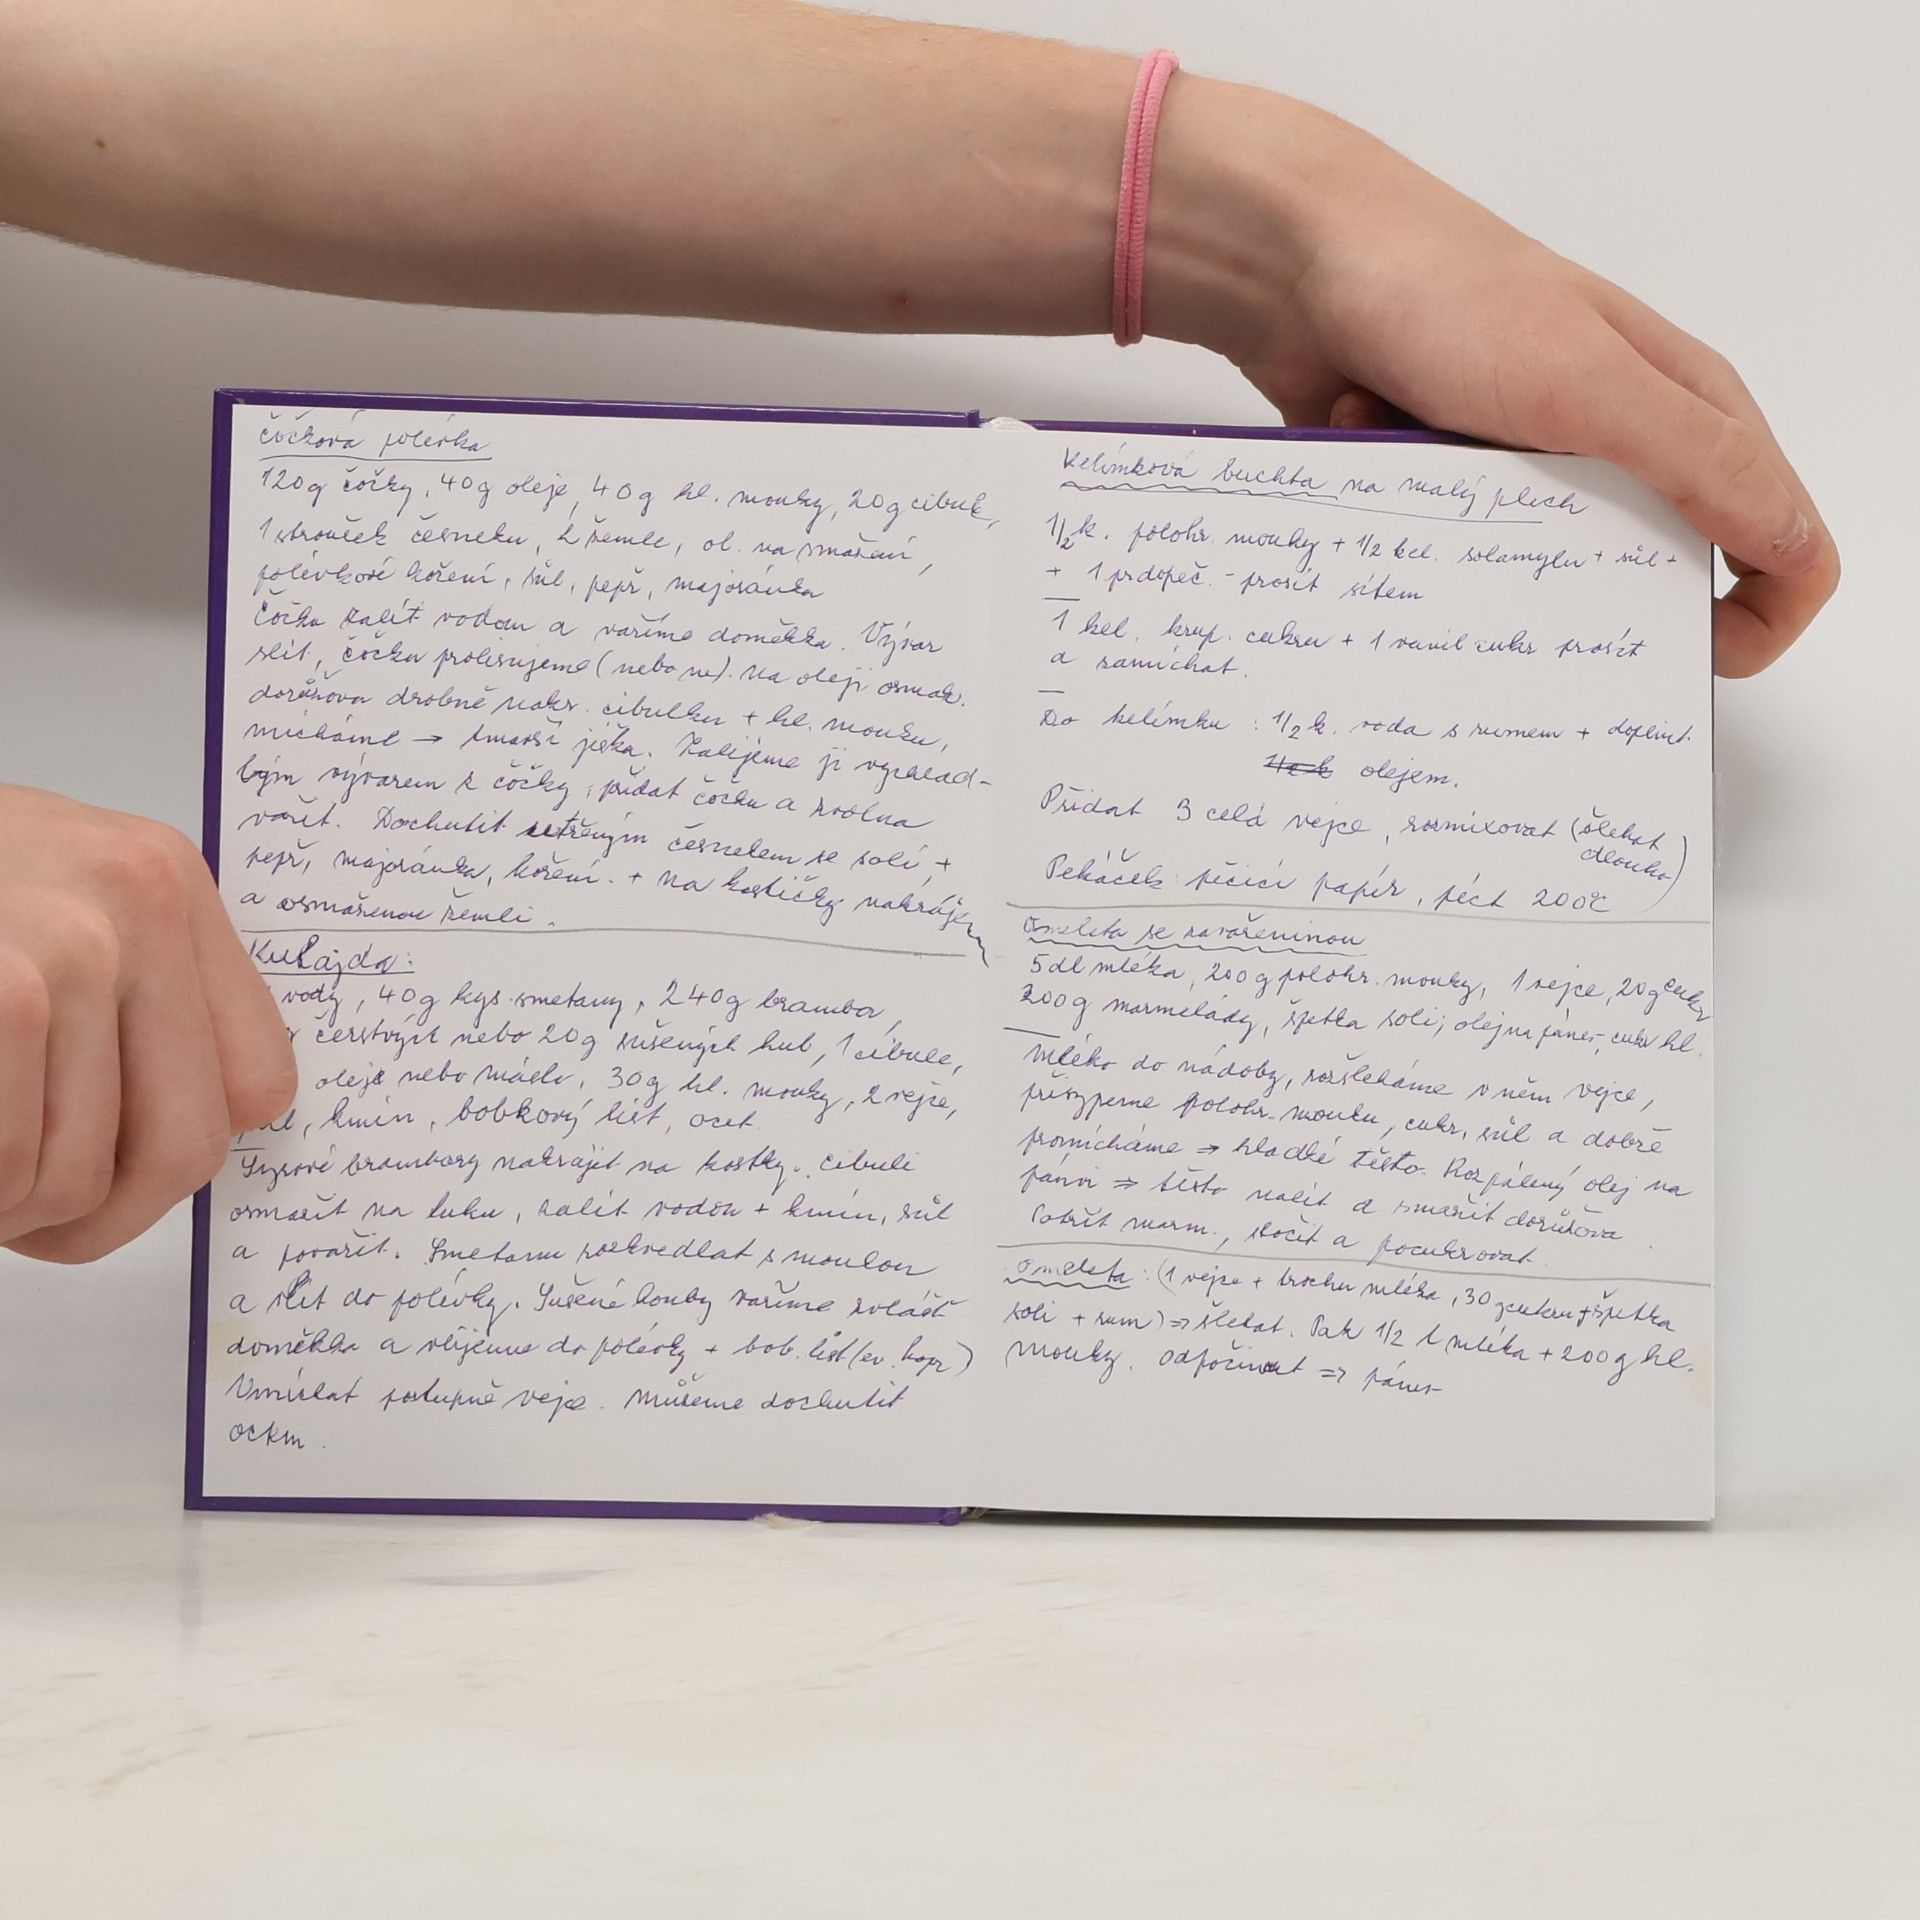 čočková polévka
120g čočky, 40g oleje, 40g hl. mouky, 20g cibule,
1 stroužek česneku, 2 žemle, ol. na smažení,
polévkové koření, sůl, pepř, majoránka
čočku zalít vodou a vaříme doměkka. Vývar
slít, čočku prolisujeme (nebo ne). Na oleji osmaž.
dorůžova drobně nakr. cibulku + hl. mouku,
mícháme → tmavší jíška. Zalijeme ji vychlad-
lým vývarem z čočky, přidat čočku a zvolna
vařit. Dochutit utřeným česnekem se solí, +
pepř, majoránka, koření. + na kostičky nakrájen
a osmaženou žemli.
Kulajda:
vody, 40g kys. smetany, 240g brambor,
čerstvých nebo 20g sušených hub, 1 cibule,
oleje nebo másla, 30g hl. mouky, 2 vejce,
kmín, bobkový list, ocet.
Syrové brambory nakrájet na kostky. Cibuli
osmažit na tuku, zalít vodou + kmín, sůl
a povařit. Smetanu rozkvedlat s moukou
a vlít do polévky. Sušené houby vaříme zvlášť
doměkka a vlijeme do polévky + bob. list (ev. kopr)
Vmíchat postupně vejce. Můžeme dochutit
octem.
Kelímková buchta na malý plech
1/2 k. polohr. mouky + 1/2 kel. solamylu + sůl +
+ 1 prdopeč. - prosít sítem
1 kel. krup. cukru + 1 vanil cukr prosít
a zamíchat.
Do kelímku : 1/2 k. voda s rumem + doplnit
1/2 k olejem.
Přidat 3 celá vejce, rozmixovat (šlehat
dlouho)
Pekáček: pečící papír, péct 200°C
Omeleta se zavařeninou
5dl mléka, 200g polohr. mouky, 1 vejce, 20g cukr
200g marmelády, špetka soli; olej na pánev, cukr hl.
Mléko do nádoby, rozšleháme v něm vejce,
přisypeme polohr. mouku, cukr, sůl a dobře
promícháme ⇒ hladké těsto. Rozpálený olej na
pánvi ⇒ těsto nalít a smažit dorůžova.
Potřít marm., stočit a pocukrovat
Omeleta: (1 vejce + trochu mléka, 30g cukru + špetka
soli + rum) ⇒ šlehat. Pak 1/2 l mléka + 200g hl.
mouky. Odpočinout ⇒ pánev